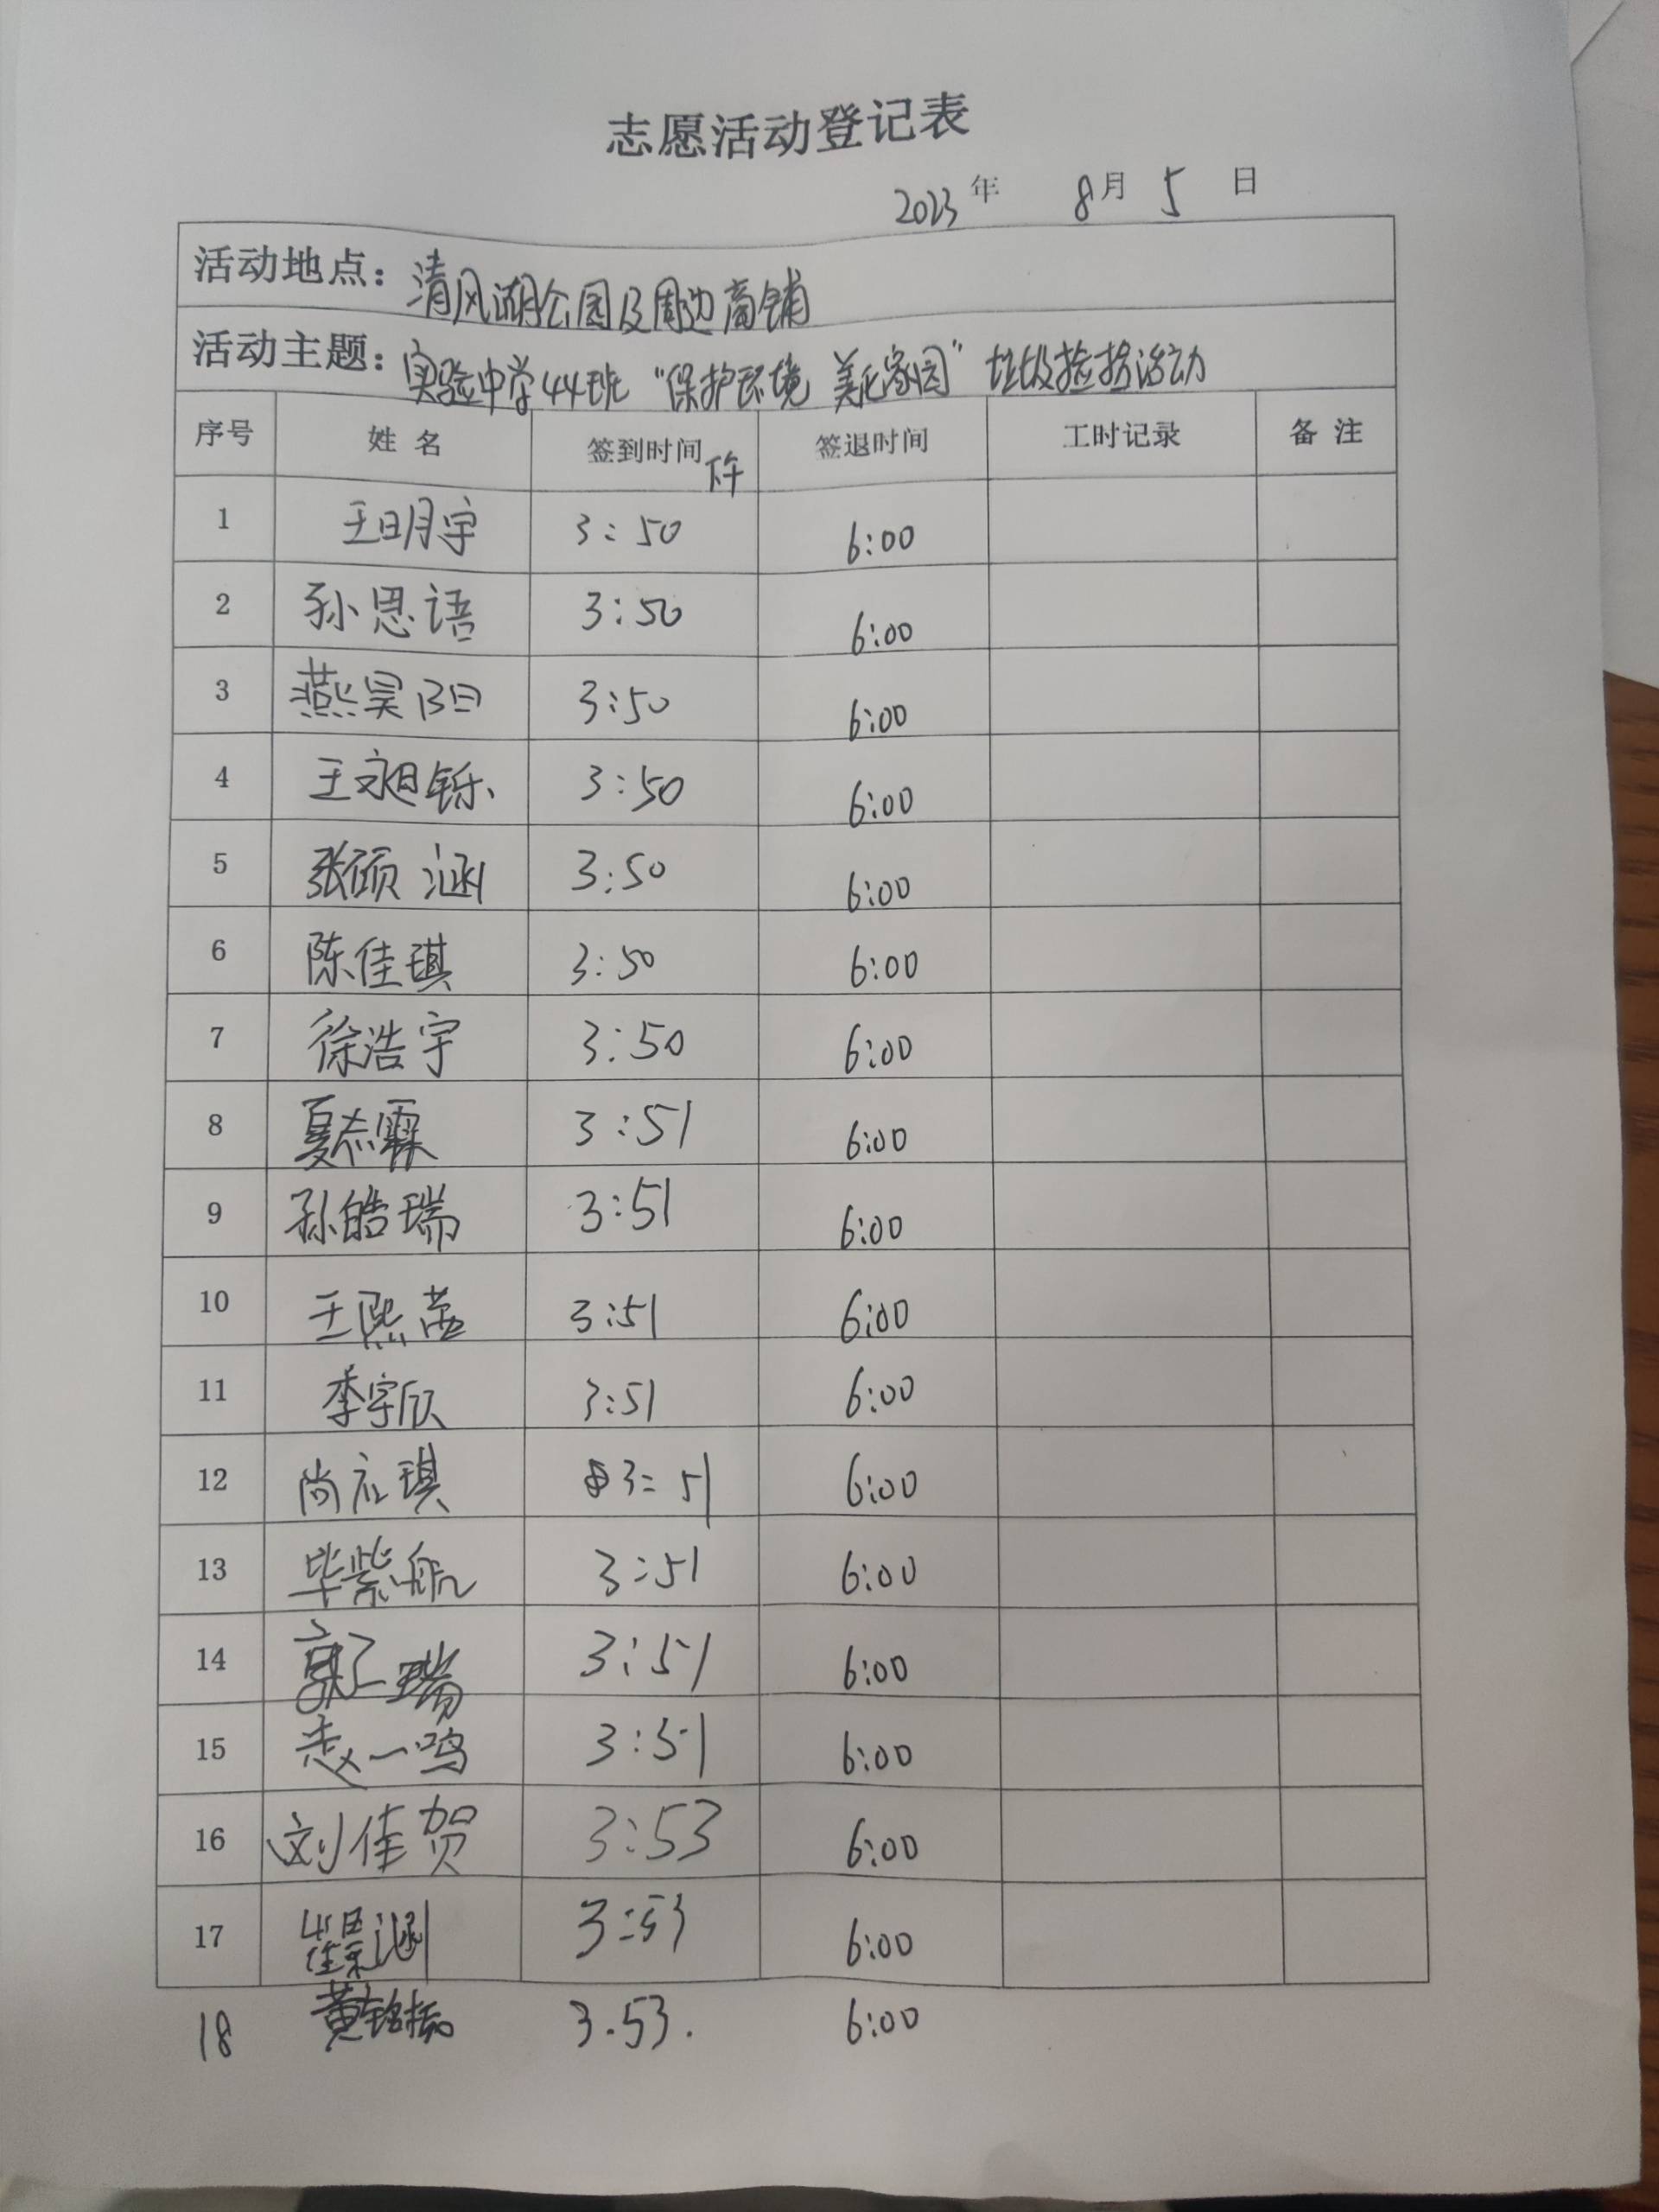 志愿活动登记表
2023年 8月5日
活动地点：清风湖公园及周边商铺
活动主题：实验中学44班“保护环境 美化家园”垃圾捡拾活动
序号 姓名 签到时间 下午 签退时间 工时记录 备注
1 王明宇 3:50 6:00
2 孙思语 3:50 6:00
3 燕昊阳 3:50 6:00
4 王昶铄 3:50 6:00
5 张硕涵 3:50 6:00
6 陈佳琪 3:50 6:00
7 徐浩宇 3:50 6:00
8 夏志霖 3:51 6:00
9 孙皓瑞 3:51 6:00
10 王熙 3:51 6:00
11 季宇欣 3:51 6:00
12 尚 琪 3:51 6:00
13 毕紫航 3:51 6:00
14 瑞 3:51 6:00
15 赵一鸣 3:51 6:00
16 刘佳贺 3:53 6:00
17 崔景涵 3:53 6:00
18 黄铭 3.53. 6:00